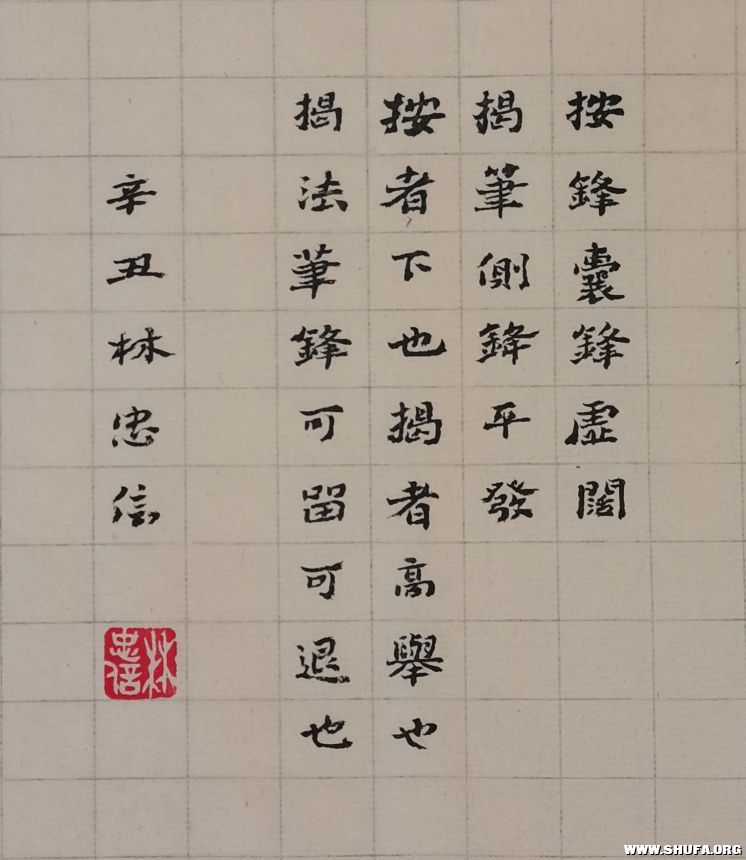 按鋒囊鋒虛闊
揭筆側鋒平發
按者下也揭者高舉也
揭法筆鋒可留可退也
辛丑林忠信
林忠信
WWW.SHUFA.ORG